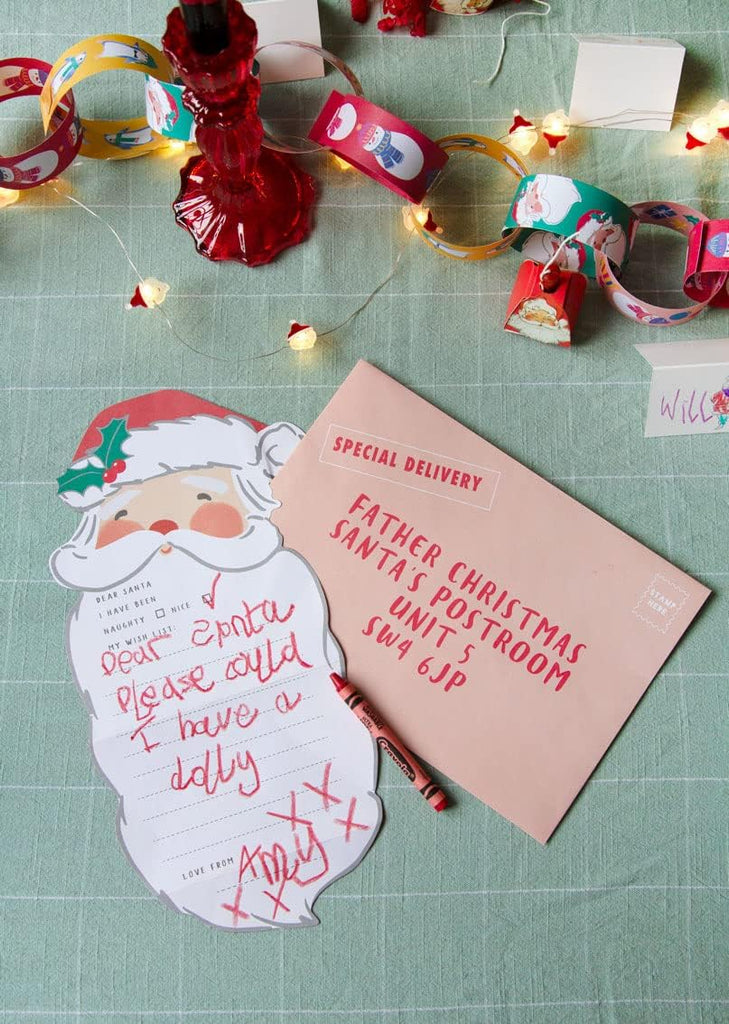 Will
SPECIAL DELIVERY
FATHER CHRISTMAS
SANTA'S POSTROOM
UNIT 5
SW4 6JP
STAMP
HERE
DEAR SANTA
I HAVE BEEN
NAUGHTY NICE
MY WISH LIST:
Dear Santa
please could
I have a
dolly
LOVE FROM Amy
X X X
X X
Crayola